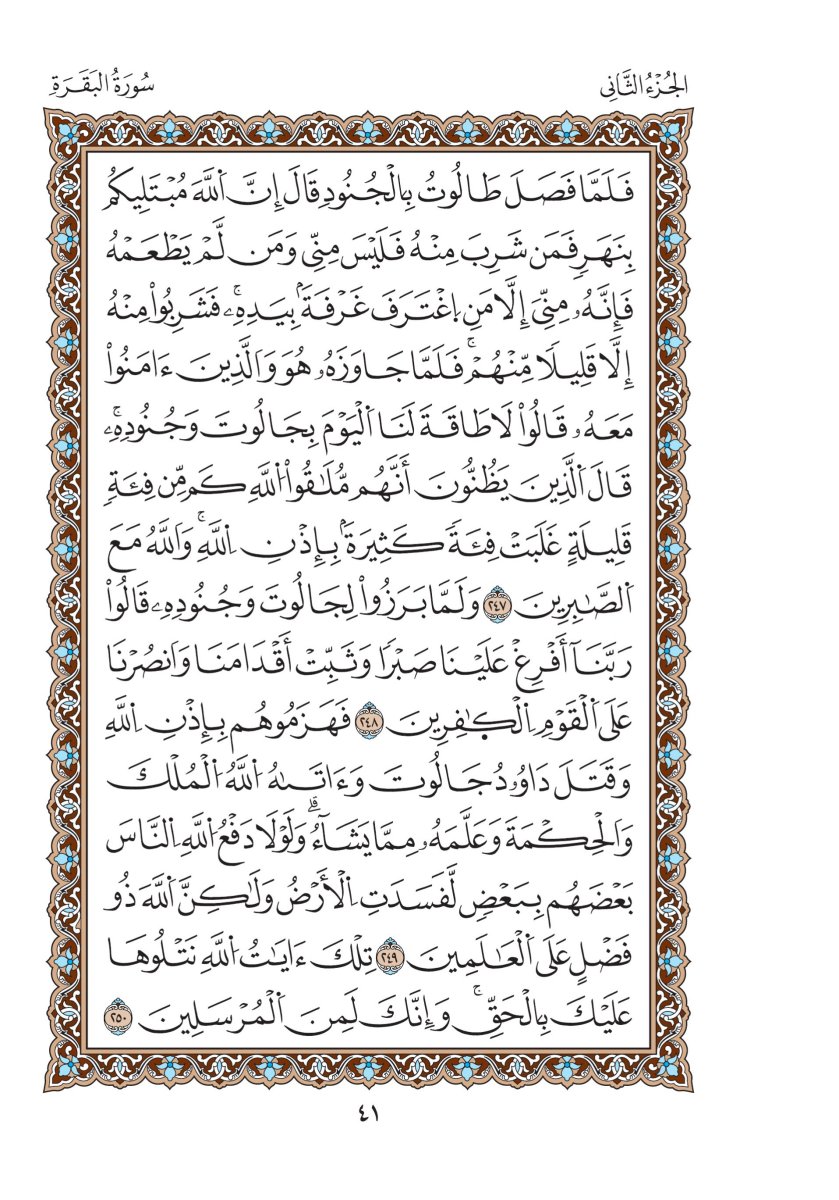 الجُزْءُ الثَّانِي
سُورَةُ البَقَرَةِ
فَلَمَّا فَصَلَ طَالُوتُ بِالْجُنُودِ قَالَ إِنَّ اَللَّهَ مُبْتَلِيكُم
بِنَهَرٖ فَمَن شَرِبَ مِنْهُ فَلَيْسَ مِنِّي وَمَن لَّمْ يَطْعَمْهُ
فَإِنَّهُۥ مِنِّيَ إِلَّا مَنِ اِغْتَرَفَ غَرْفَةَۢ بِيَدِهِۦۚ فَشَرِبُواْ مِنْهُ
إِلَّا قَلِيلٗا مِّنْهُمْۚ فَلَمَّا جَاوَزَهُۥ هُوَ وَالَّذِينَ ءَامَنُواْ
مَعَهُۥ قَالُواْ لَا طَاقَةَ لَنَا اَلْيَوْمَ بِجَالُوتَ وَجُنُودِهِۦۚ
قَالَ اَلَّذِينَ يَظُنُّونَ أَنَّهُم مُّلَٰقُواْ اُللَّهِ كَم مِّن فِئَةٖ
قَلِيلَةٍ غَلَبَتْ فِئَةٗ كَثِيرَةَۢ بِإِذْنِ اِللَّهِۚ وَاللَّهُ مَعَ
اَلصَّٰبِرِينَ ٢٤٧ وَلَمَّا بَرَزُواْ لِجَالُوتَ وَجُنُودِهِۦ قَالُواْ
رَبَّنَآ أَفْرِغْ عَلَيْنَا صَبْرٗا وَثَبِّتْ أَقْدَامَنَا وَانصُرْنَا
عَلَى اَلْقَوْمِ اِلْكٰفِرِينَ ٢٤٨ فَهَزَمُوهُم بِإِذْنِ اِللَّهِ
وَقَتَلَ دَاوُۥدُ جَالُوتَ وَءَاتَىٰهُ اُللَّهُ اُلْمُلْكَ
وَالْحِكْمَةَ وَعَلَّمَهُۥ مِمَّا يَشَآءُۗ وَلَوْلَا دَفْعُ اُللَّهِ اِلنَّاسَ
بَعْضَهُم بِبَعْضٖ لَّفَسَدَتِ اِلْأَرْضُ وَلَٰكِنَّ اَللَّهَ ذُو
فَضْلٍ عَلَى اَلْعَٰلَمِينَ ٢٤٩ تِلْكَ ءَايَٰتُ اُللَّهِ نَتْلُوهَا
عَلَيْكَ بِالْحَقِّۚ وَإِنَّكَ لَمِنَ اَلْمُرْسَلِينَ ٢٥٠
٤١